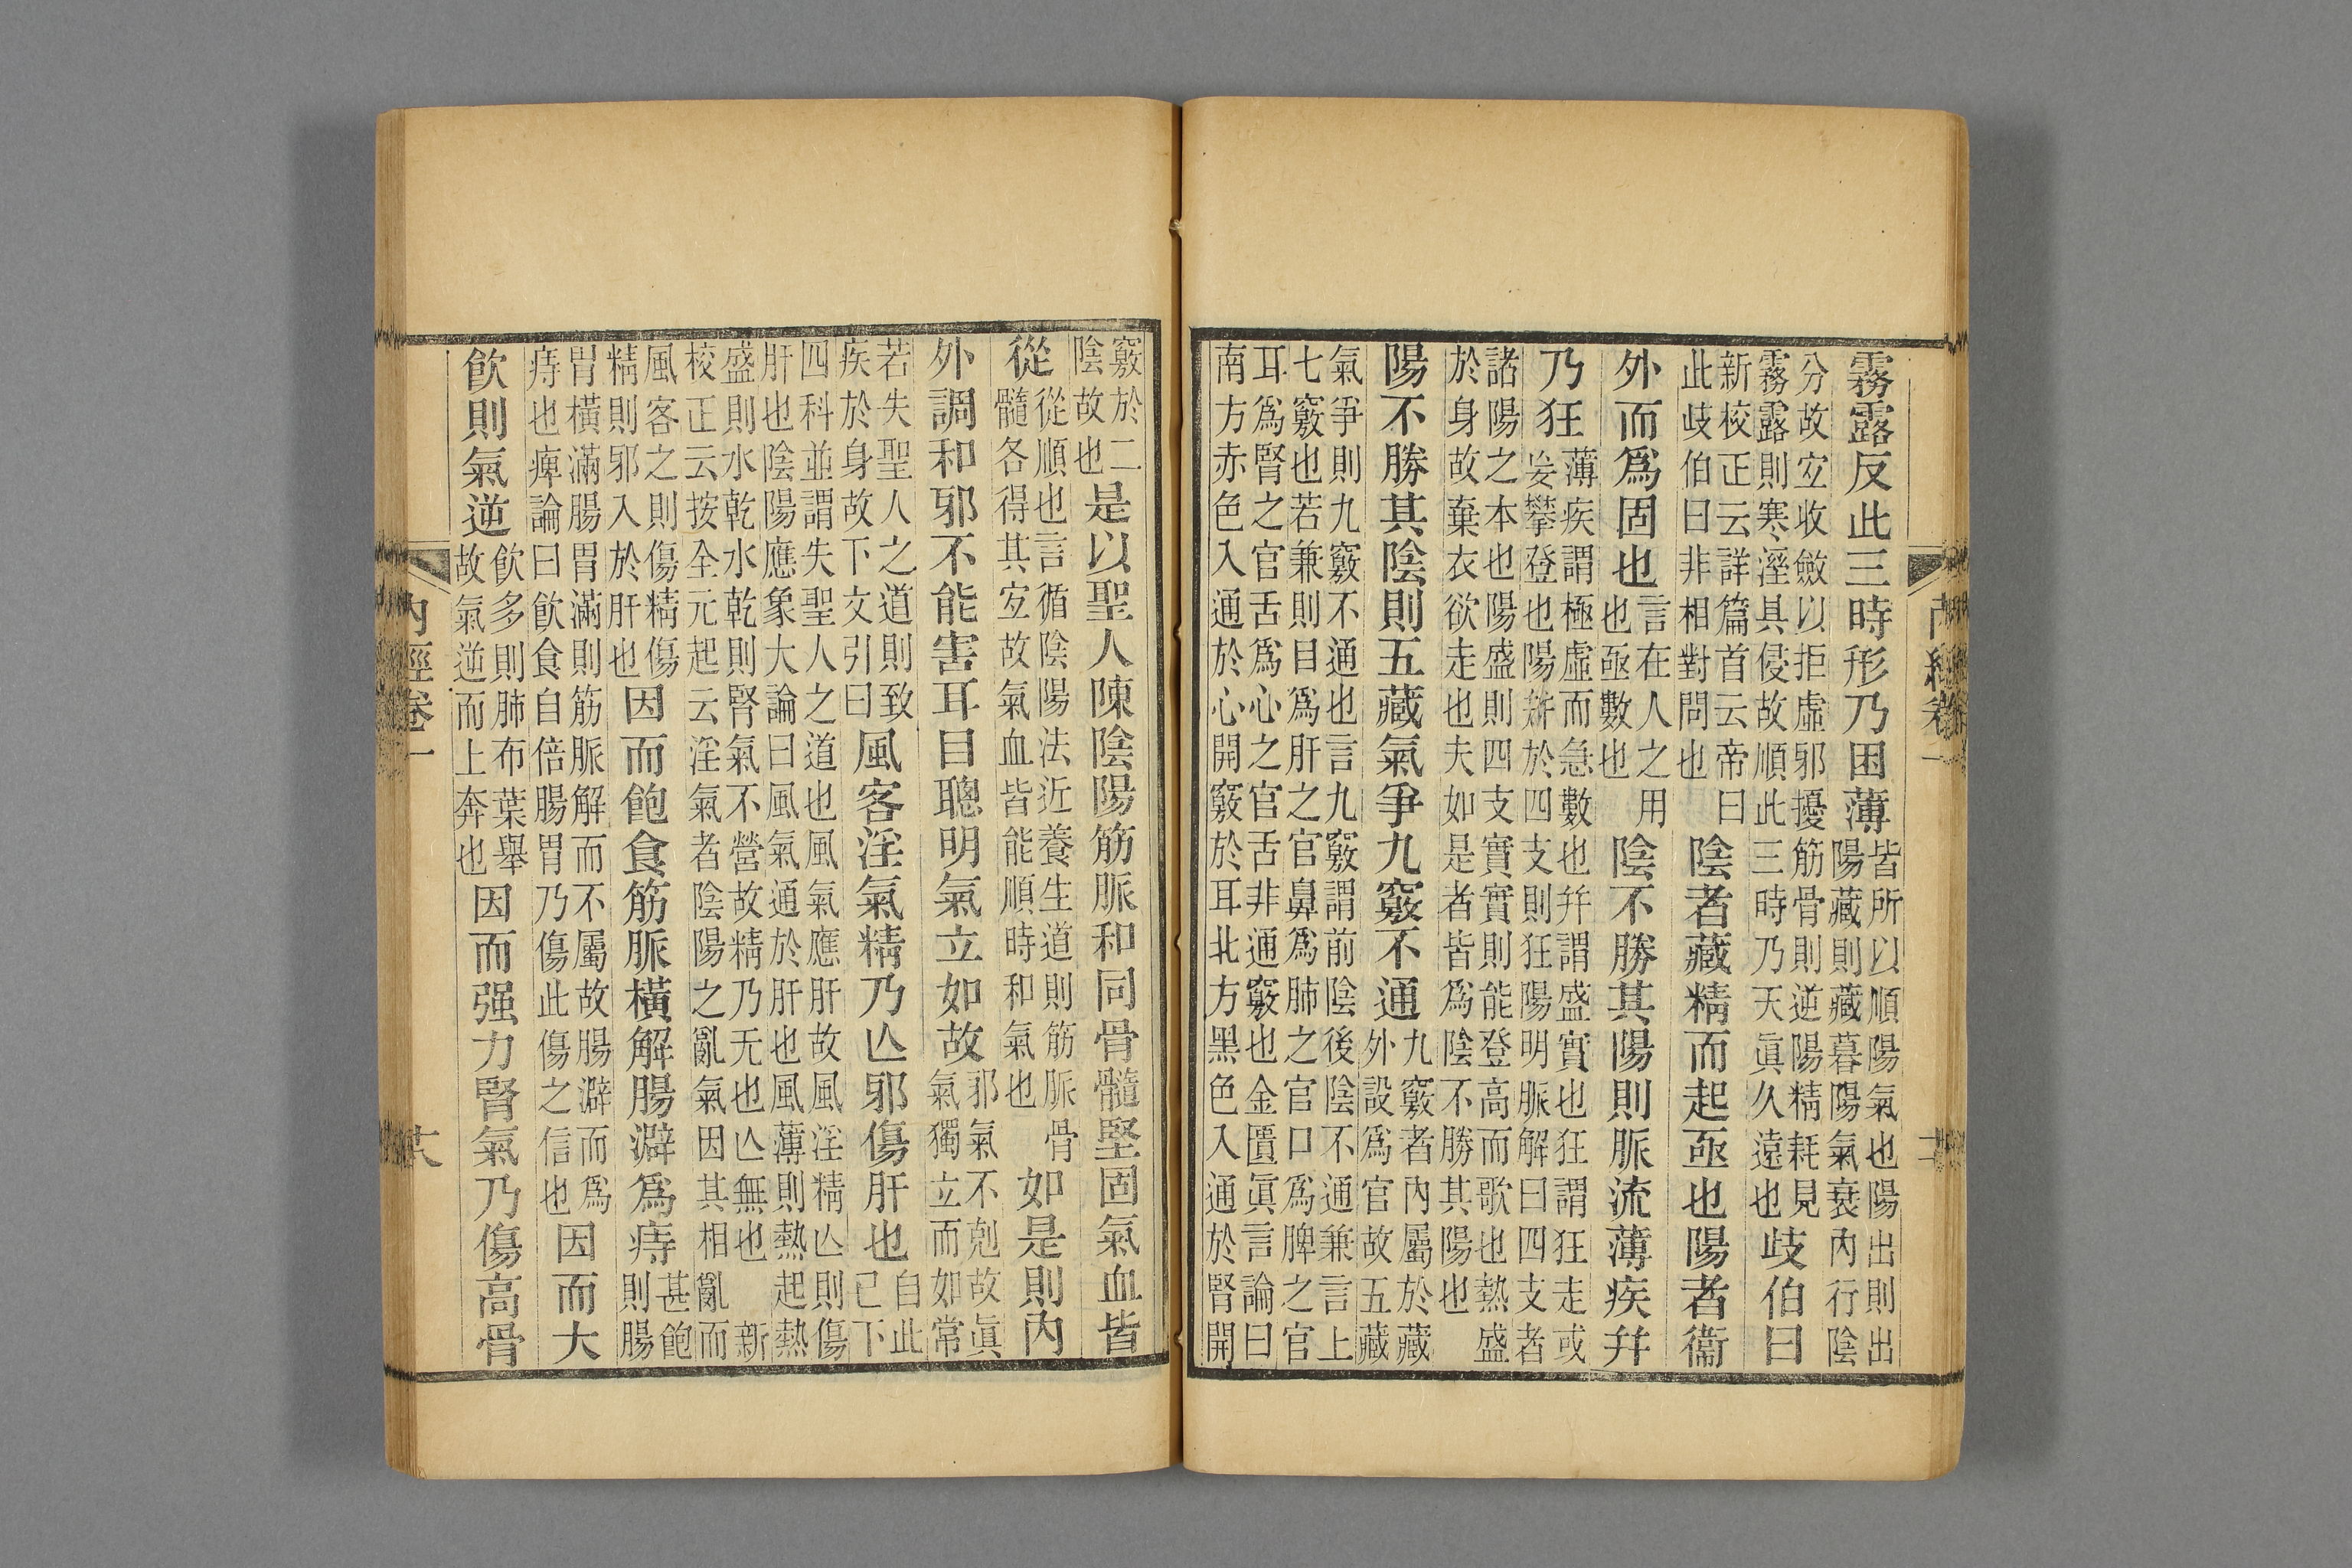 霧露反此三時形乃困薄
皆所以順陽氣也陽出則出
陽藏則藏暮陽氣衰內行陰
分故宐收斂以拒虛邪擾筋骨則逆陽精耗見
霧露則寒溼具侵故順此三時乃天眞久遠也
歧伯曰
新校正云詳篇首云帝曰
此歧伯曰非相對問也
陰者藏精而起亟也陽者衞
外而爲固也
言在人之用
也亟數也
陰不勝其陽則脈流薄疾幷
乃狂
薄疾謂極虛而急數也幷謂盛實也狂謂狂走或
妄攀登也陽幷於四支則狂陽明脈解曰四支者
諸陽之本也陽盛則四支實實則能登高而歌也熱盛
於身故棄衣欲走也夫如是者皆爲陰不勝其陽也
陽不勝其陰則五藏氣爭九竅不通
九竅者內屬於藏
外設爲官故五藏
氣爭則九竅不通也言九竅謂前陰後陰不通兼言上
七竅也若兼則目爲肝之官鼻爲肺之官口爲脾之官
耳爲腎之官舌爲心之官舌非通竅也金匱眞言論曰
南方赤色入通於心開竅於耳北方黑色入通於腎開
竅於二
陰故也
是以聖人陳陰陽筋脈和同骨髓堅固氣血皆
從
從順也言循陰陽法近養生道則筋脈骨
髓各得其宐故氣血皆能順時和氣也
如是則內
外調和邪不能害耳目聰明氣立如故
邪氣不剋故眞
氣獨立而如常
若失聖人之道則致
疾於身故下文引曰
風客淫氣精乃亾邪傷肝也
自此
已下
四科並謂失聖人之道也風氣應肝故風淫精亾則傷
肝也陰陽應象大論曰風氣通於肝也風薄則熱起熱
盛則水乾水乾則腎氣不營故精乃无也亾無也 新
校正云按全元起云淫氣者陰陽之亂氣因其相亂而
風客之則傷精傷
精則邪入於肝也
因而飽食筋脈橫解腸澼爲痔
甚飽
則腸
胃橫滿腸胃滿則筋脈解而不屬故腸澼而爲
痔也痺論曰飲食自倍腸胃乃傷此傷之信也
因而大
飲則氣逆
飲多則肺布葉舉
故氣逆而上奔也
因而强力腎氣乃傷高骨
內經卷一
十八